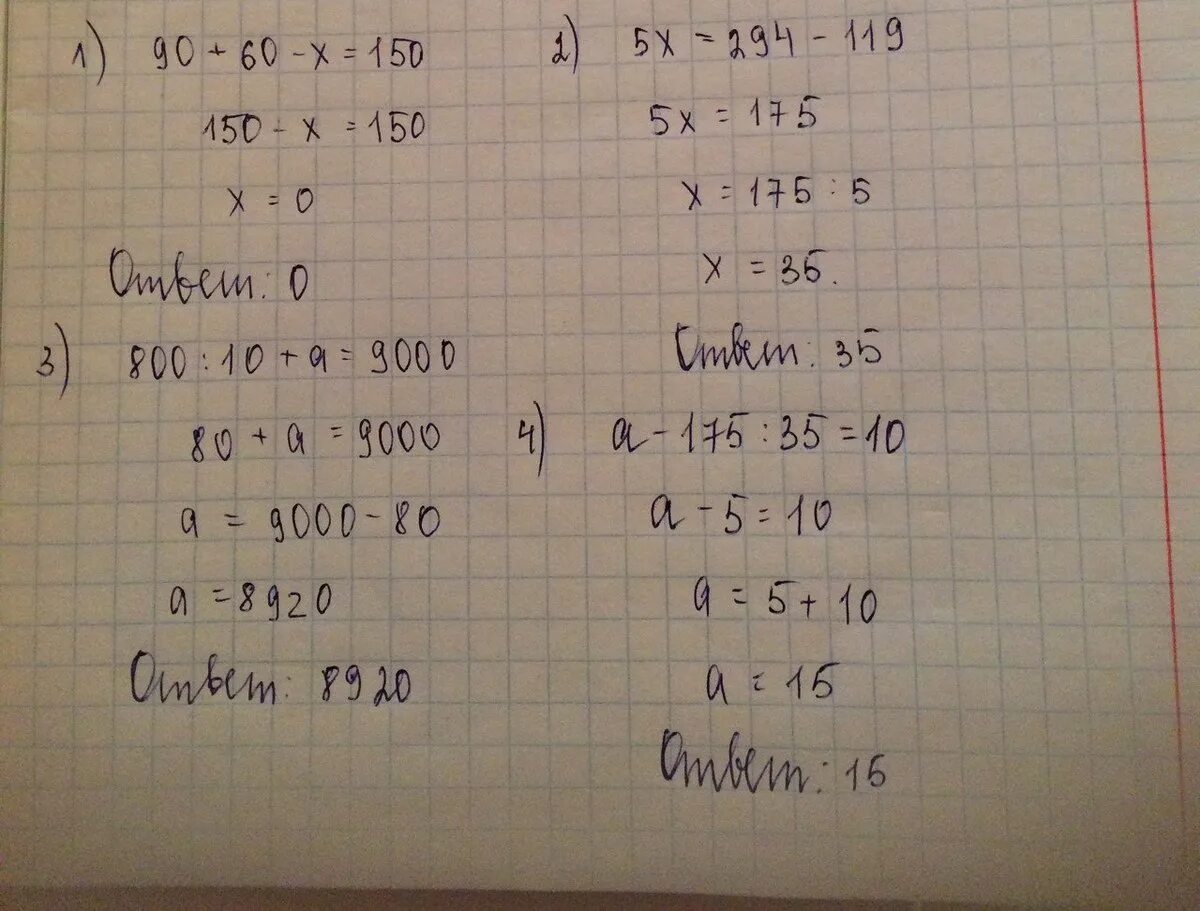 1) 90 + 60 - x = 150
150 - x = 150
x = 0
Ответ: 0
2) 5x = 294 - 119
5x = 175
x = 175 : 5
x = 35.
Ответ: 35
3) 800 : 10 + a = 9000
80 + a = 9000
a = 9000 - 80
a = 8920
Ответ: 8920
4) a - 175 : 35 = 10
a - 5 = 10
a = 5 + 10
a = 15
Ответ: 15